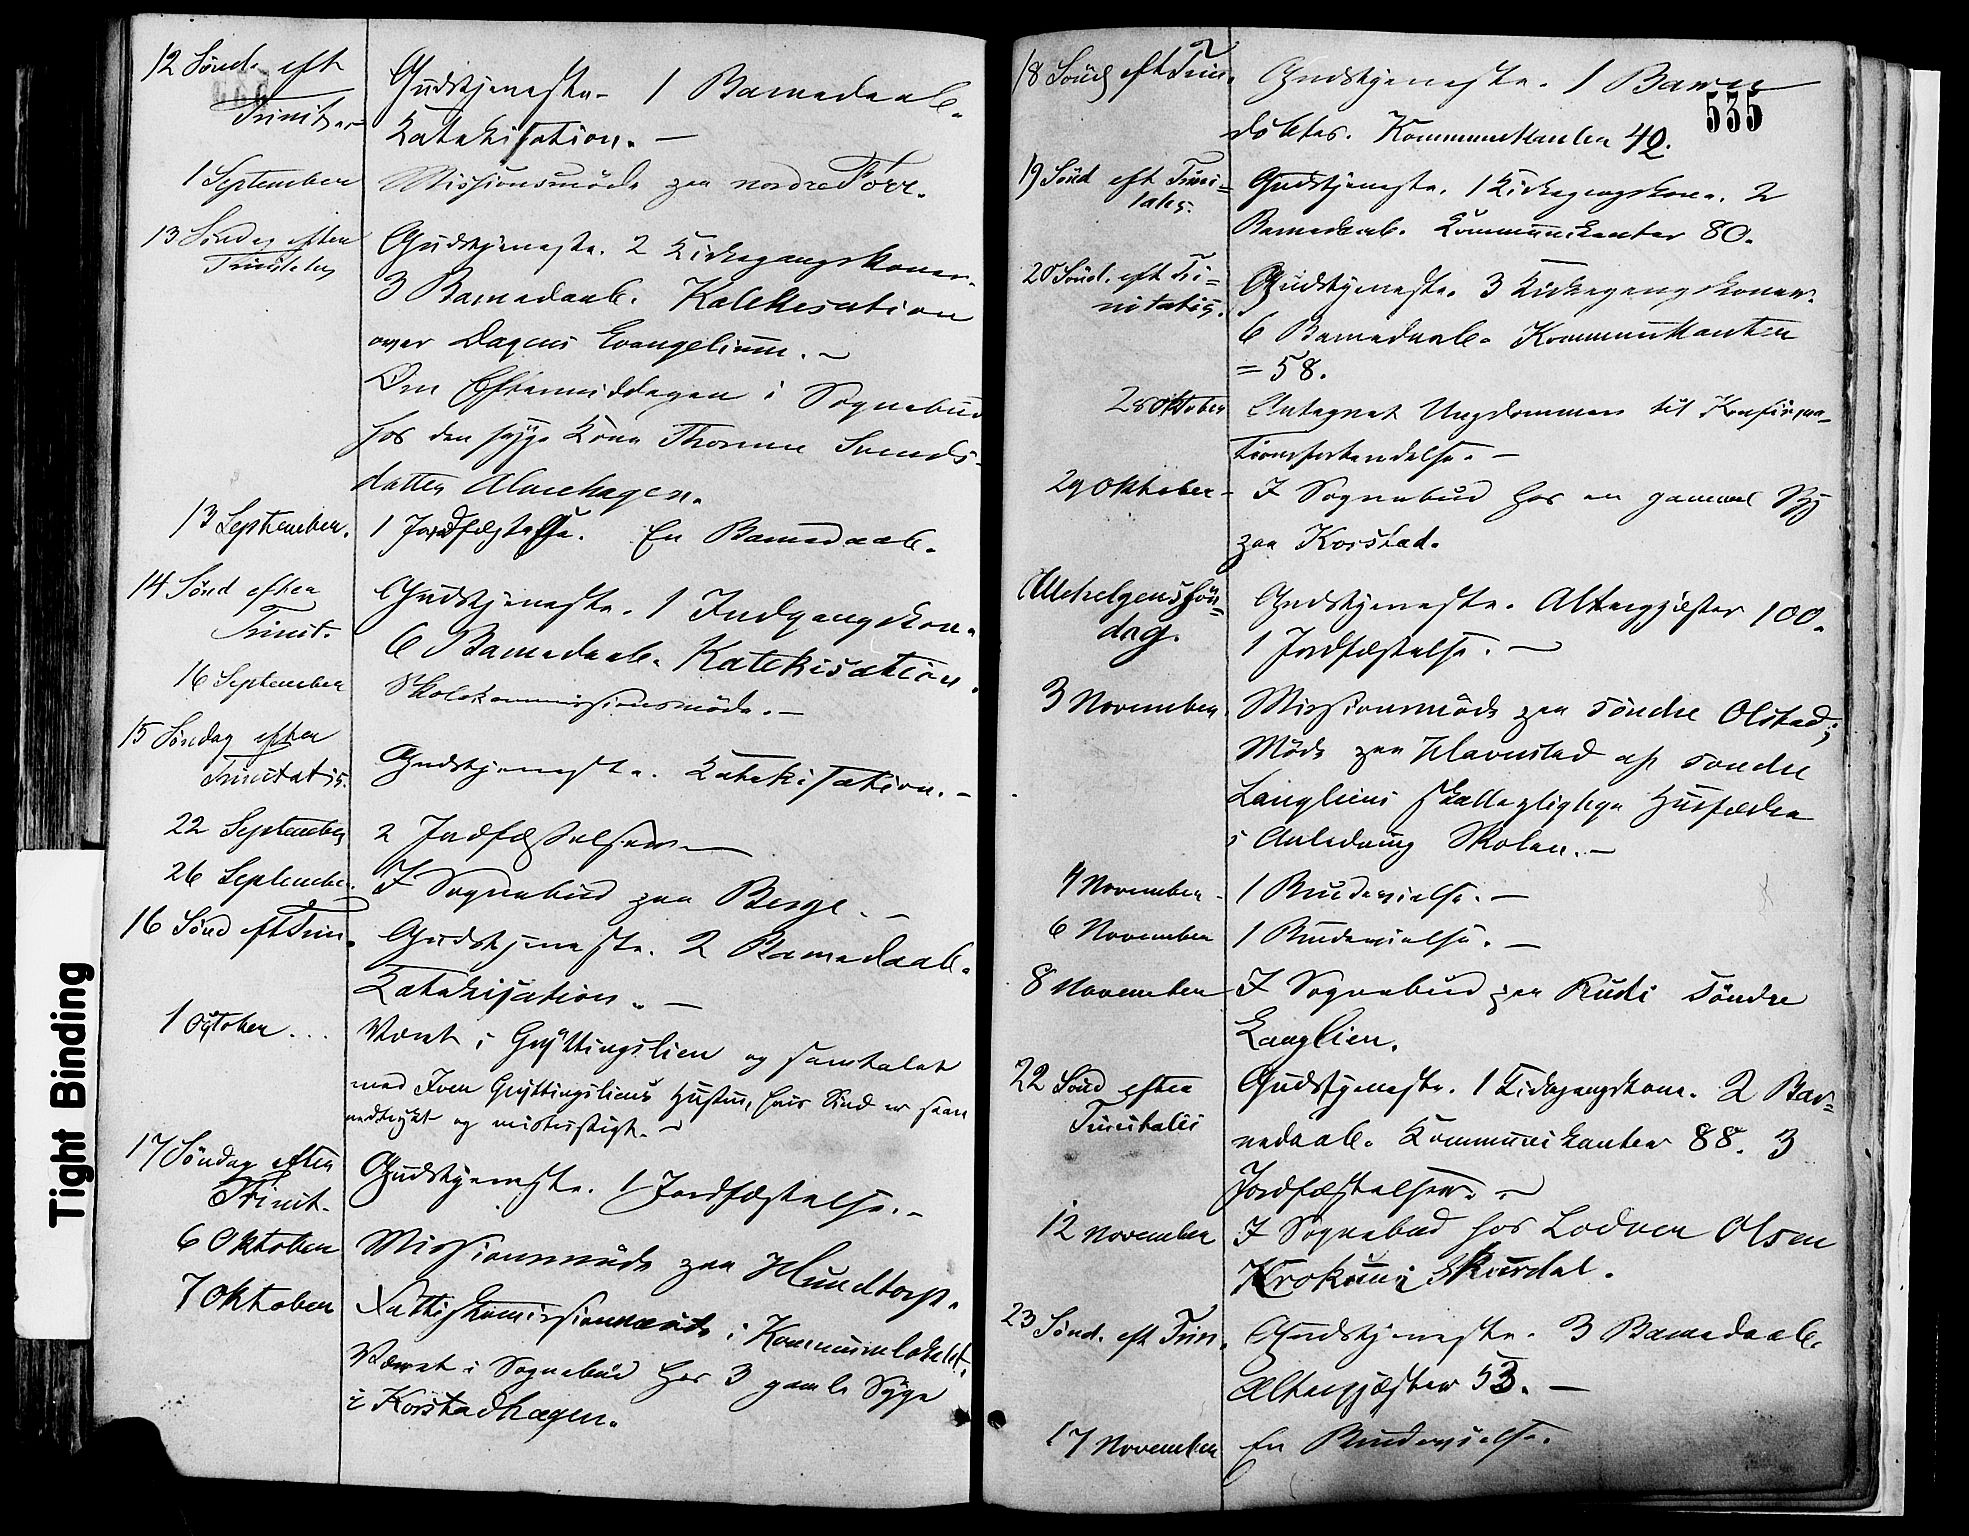 12 Sönd. eft
Trinit.
Gudstjeneste. 1 Barnedaab.
Katekisation. —
1 September
Missionsmöde paa nordre Forr.
13 Söndag efter
Trinitatis
Gudstjeneste. 2 Kirkegangskoner.
3 Barnedaab. Katekisation
over Dagens Evangelium. —
Om Eftermiddagen i Sognebud
hos den syge Kone Thorine Svends-
datter
13 September.
1 Jordfæstelse. En Barnedaab.
14 Sönd efter
Trinit.
Gudstjeneste. 1 Indgangskone.
6 Barnedaab. Katekisation.
16 September
Skolekommissionsmöde. —
15 Söndag efter
Trinitatis.
Gudstjeneste. Katekisation. —
22 September
2 Jordfæstelser —
26 September.
I Sognebud paa Berge. —
16 Sönd eft Trin.
Gudstjeneste. 2 Barnedaab.
Katekisation. —
1 October...
Været i Gryttingslien og samtalet
med Iver Gryttingsliens Hustru, hvis Sind er saare
nedtrykt og mistrøstigt. —
17 Söndag efter
Trinit.
Gudstjeneste. 1 Jordfæstelse. —
6 Oktober
Missionsmöde paa Hundtorp.
7 Oktober
Fattigkomissionsmöde i Kommunelokalet.
Været i Sognebud hos 3 gamle Syge
i Korstadhagen.
18 Sönd eft Trin.
Gudstjeneste. 1 Barn
535
döbtes. Kommunikanter 42.
19 Sönd eft Trini=
tatis.
Gudstjeneste. 1 Kirkegangskone. 2
Barnedaab. Kommunikanter 80.
20 Sönd. eft Tri=
nitatis.
Gudstjeneste. 3 Kirkegangskoner.
6 Barnedaab. Kommunikanter
= 58.
28 Oktober
Antegnet Ungdommen til Konfirma-
tionsforberedelse. —
29 Oktober —
I Sognebud hos en gammel Syg
paa Korstad.
Allehelgenssön=
dag.
Gudstjeneste. Altergjæster 100.
1 Jordfæstelse. —
3 November.
Missionsmöde paa söndre Olstad;
Möde paa af söndre
Langliens Husfædre
i Anledning Skolen. —
4 November —
1 Brudevielse. —
6 November
1 Brudevielse. —
8 November
I Sognebud paa Rudi söndre
Langlien.
22 Sönd efter
Trinitatis
Gudstjeneste. 1 Kirkegangskone. 2 Bar=
nedaab. Kommunikanter 88. 3
Jordfæstelser. —
12 November
I Sognebud hos Lodver Olsen
Krokun i Skurdal.
23 Sönd. eft Trin.
Gudstjeneste. 3 Barnedaab.
Altergjæster 53. —
17 November
En Brudevielse.
Tight Binding